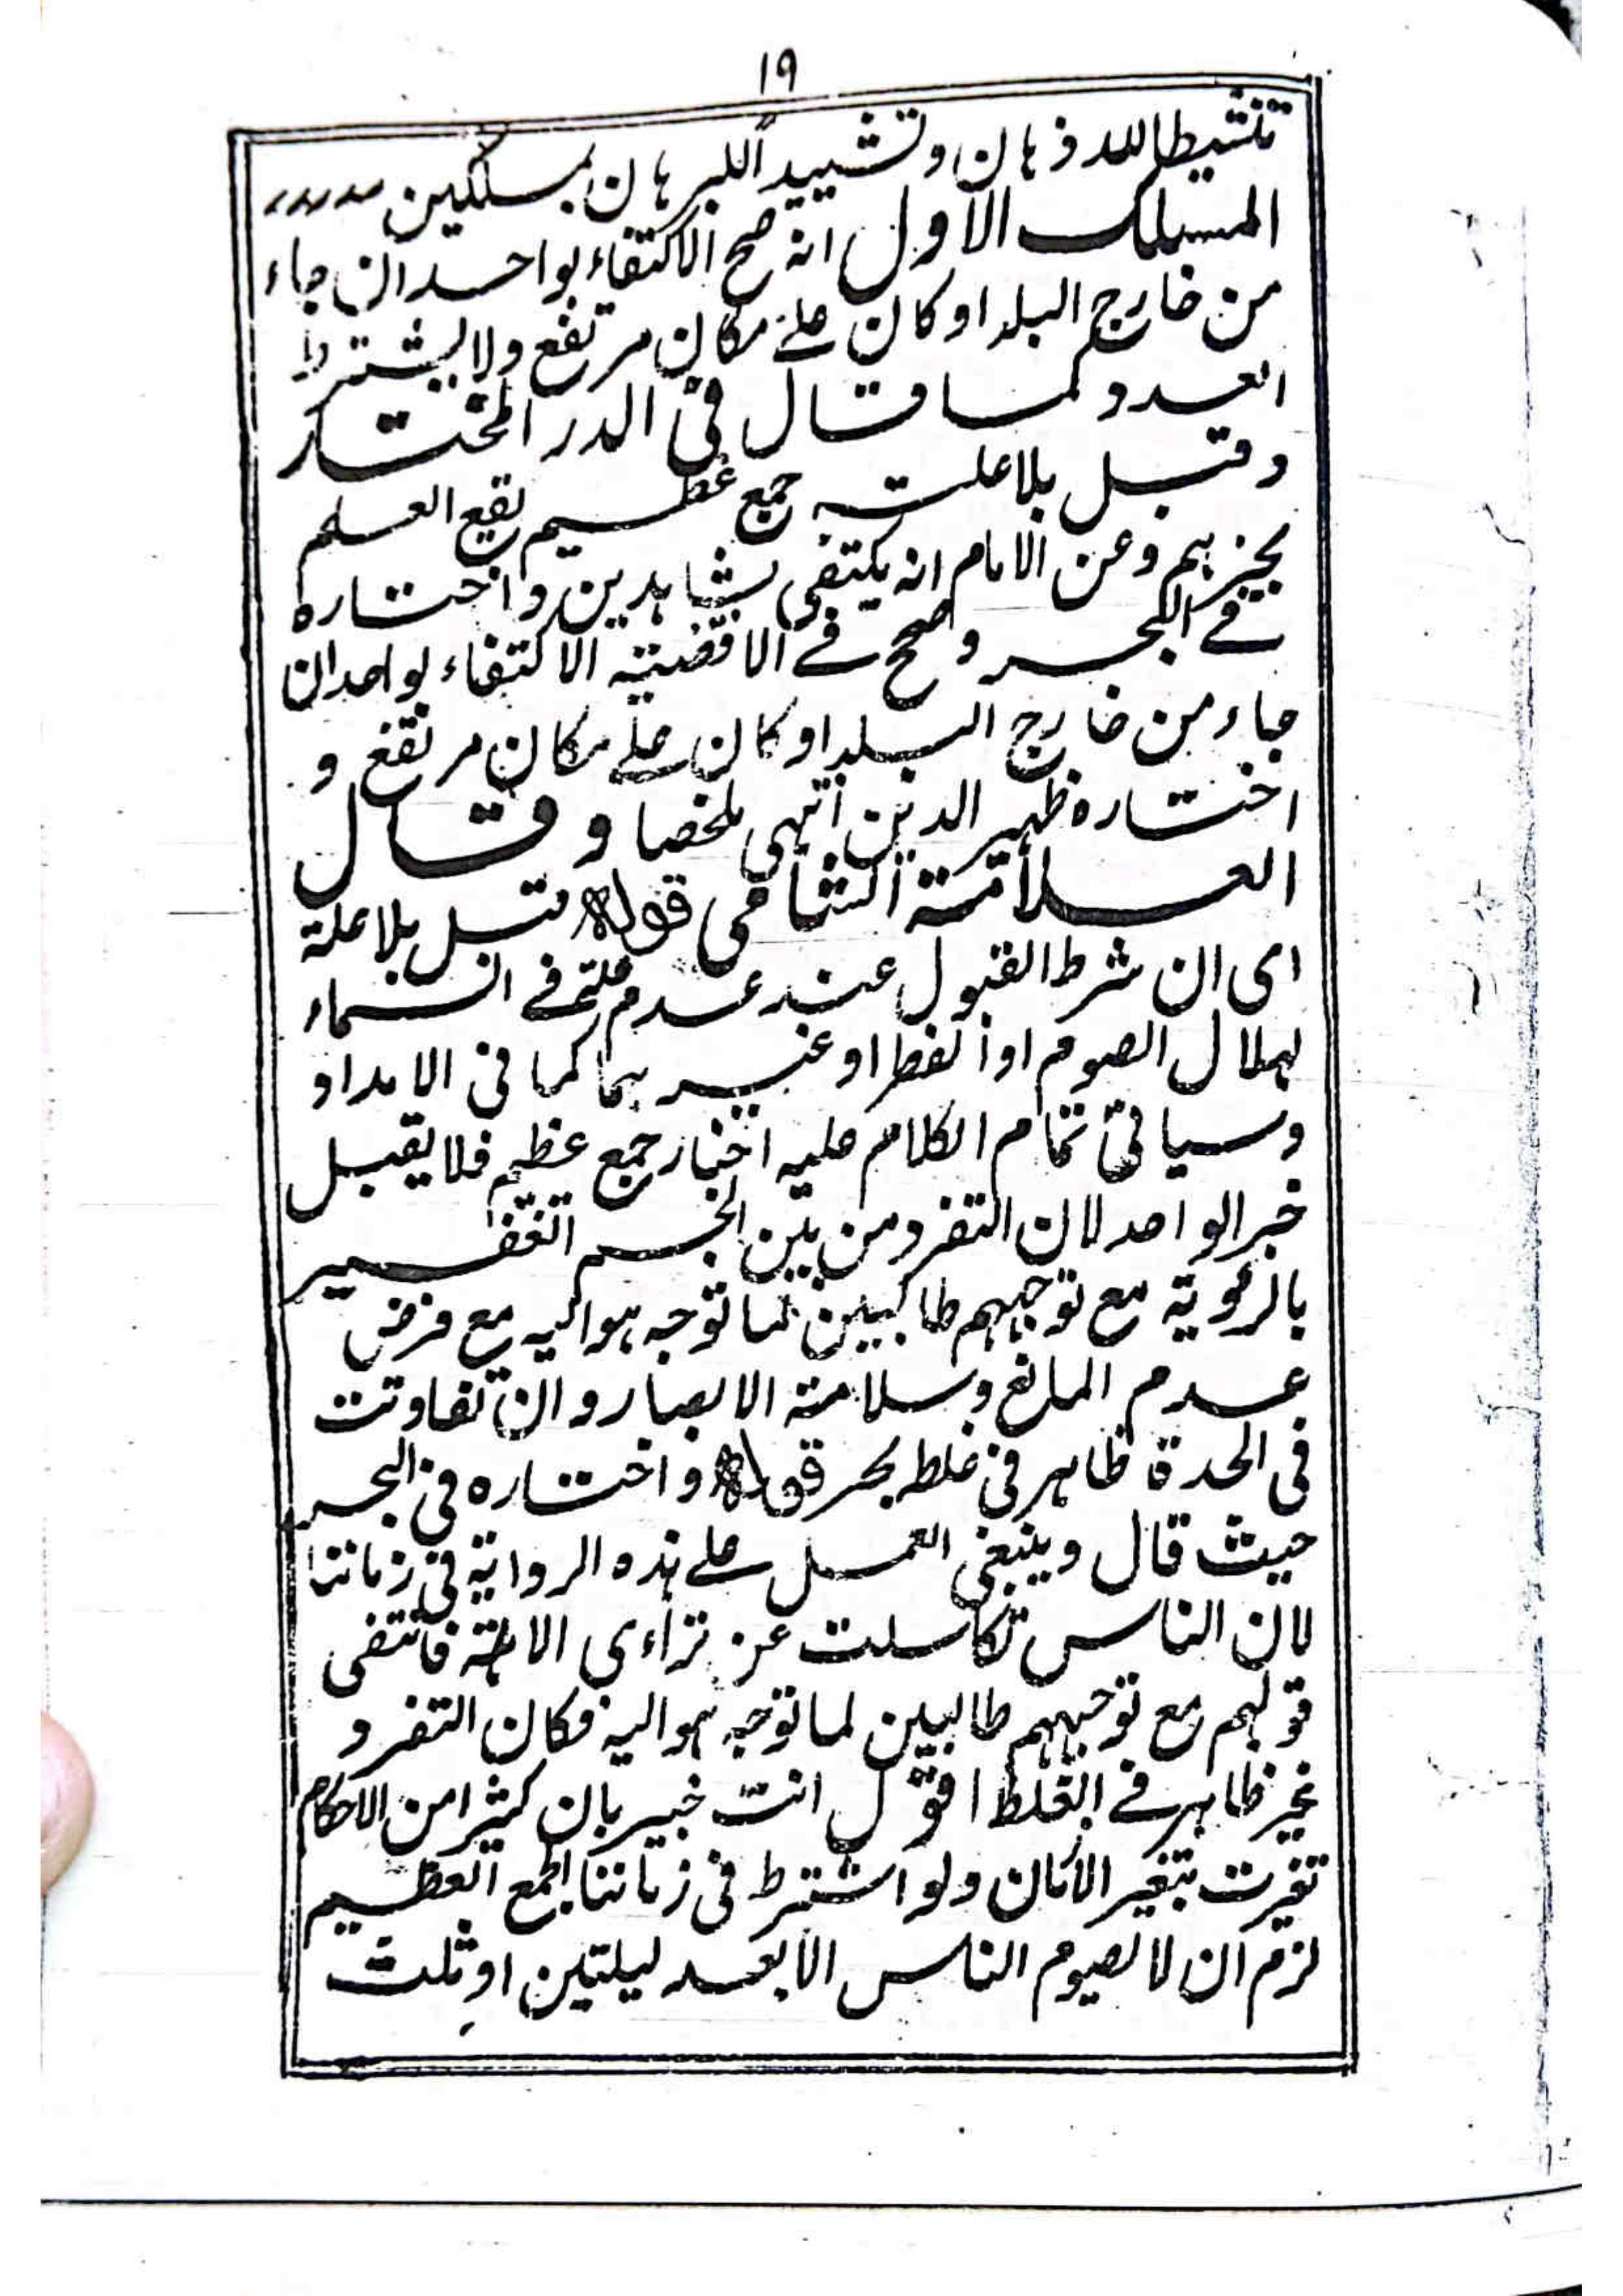 ١٩
تنشيطا للاذهان وتشييدا للبرهان بمسلكين
المسلك الاول انه صح الاكتفاء بواحد ان جاء
من خارج البلد او كان علے مكان مرتفع ولا يشترط
العدد كما قال فى الدر المختار
وقبل بلا علة جمع عظيم يقع العلم
بخبرہم وعن الامام انه يكتفى بشاہدين واختاره
فے البحر وصحح فے الاقضية الاكتفاء بواحد ان
جاء من خارج البلد او كان علے مكان مرتفع و
اختاره ظہير الدين انتہى ملخصا وقال
العلامة الشامى قوله قبل بلا علة
اى ان شرط القبول عند عدم علة فے السماء
لہلال الصوم او الفطر او غيرہما كما فى الامداد
وسياتى تمام الكلام عليه اخبار جمع عظيم فلا يقبل
خبر الواحد لان التفرد من بين الجم الغفير
بالرؤية مع توجہہم طالبين لما توجه ہو اليه مع فرض
عدم المانع وسلامة الابصار وان تفاوتت
فى الحدة ظاہر فى غلطه بحر قوله واختاره فى البحر
حيث قال وينبغى العمل علے ہذه الرواية فى زماننا
لان الناس تكاسلت عن ترائى الاہلة فانتفى
قولہم مع توجہہم طالبين لما توجه ہو اليه فكان التفرد
غير ظاہر فے الغلط اقول انت خبير بان كثيرا من الاحكام
تغيرت بتغير الازمان ولو اشترط فى زماننا الجمع العظيم
لزم ان لا يصوم الناس الا بعد ليلتين او ثلث